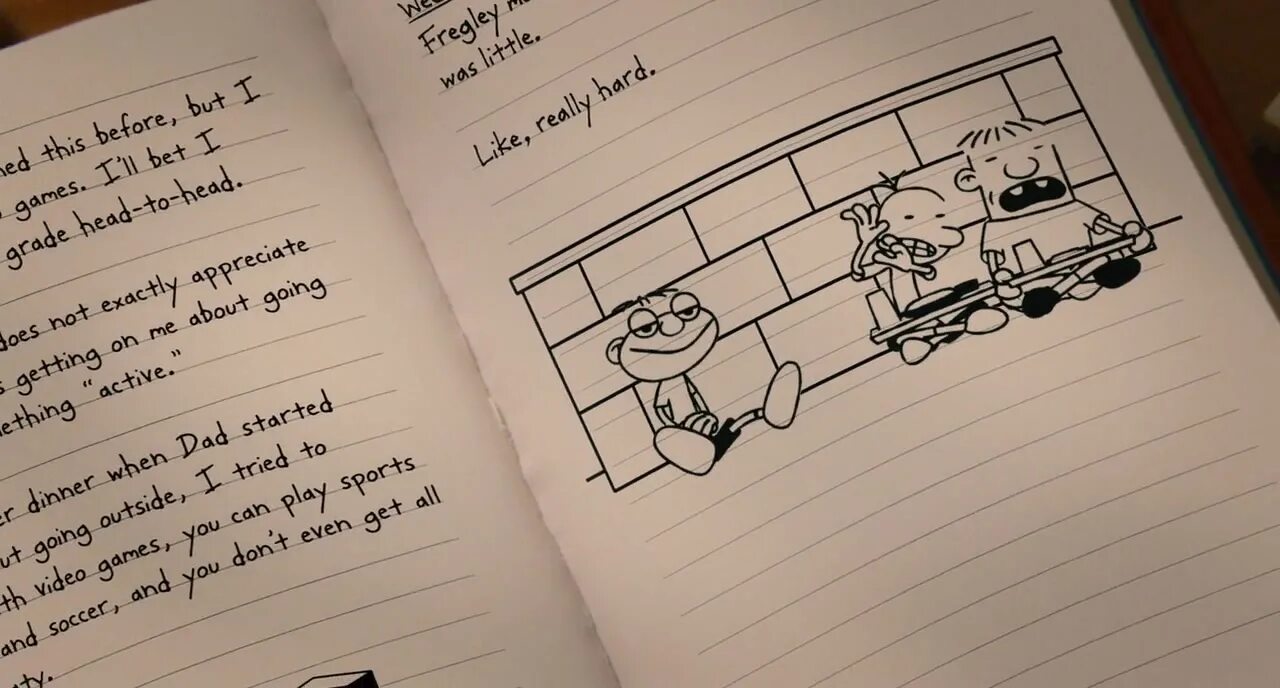 this before, but I
games. I'll bet I
grade head-to-head.
does not exactly appreciate
getting on me about going
"active."
dinner when Dad started
going outside, I tried to
video games, you can play sports
and soccer, and you don't even get all
Fregley
was little.
Like, really hard.